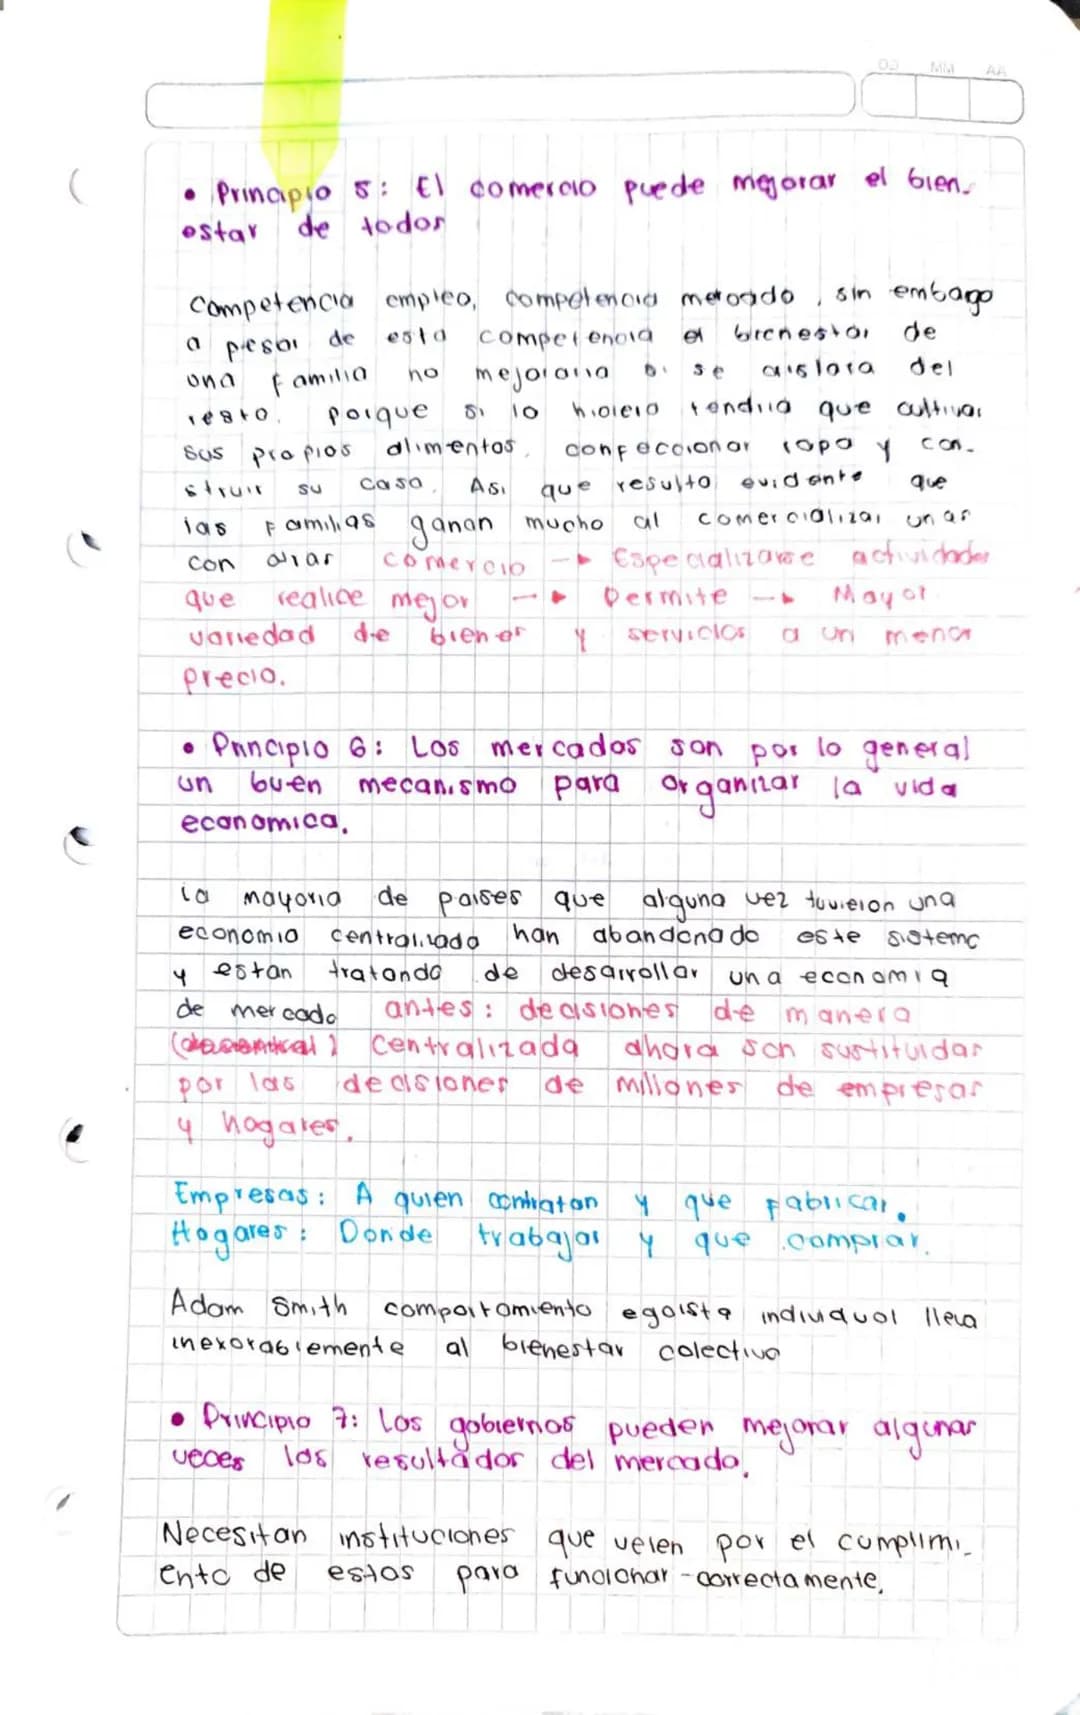 DD MM AA
• Principio 5: El comercio puede mejorar el bien-
estar de todos
Competencia empleo, competencia mercado, sin embago
a pesar de esta competencia el bienestar de
una familia no mejoraria si se aislara del
resto, porque si lo hiciera tendria que cultivar
sus propios alimentos, confeccionar ropa y con-
struir su casa. Asi que resulta evidente que
las familias ganan mucho al comercializar unas
con otras comercio -> Especializarse actividades
que realice mejor -> Permite -> Mayor
variedad de bienes y servicios a un menor
precio.
• Principio 6: Los mercados son por lo general
un buen mecanismo para organizar la vida
economica.
la mayoria de paises que alguna vez tuvieron una
economia centralizada han abandonado este sistema
y estan tratando de desarrollar una economia
de mercado antes: decisiones de manera
centralizada ahora son sustituidas
por las decisiones de millones de empresas
y hogares.
Empresas: A quien contratan y que fabricar.
Hogares: Donde trabajar y que comprar.
Adam Smith comportamiento egoista individual lleva
inexorablemente al bienestar colectivo
• Principio 7: Los gobiernos pueden mejorar algunas
veces los resultados del mercado.
Necesitan instituciones que velen por el cumplimi-
ento de estos para funcionar correctamente.